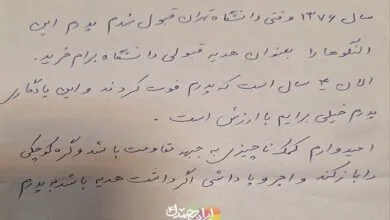 سال ۱۳۷۶ وقتی دانشگاه تهران قبول شدم پدرم این
النگوها را بعنوان هدیه قبولی دانشگاه برام خرید.
الان ۴ سال است که پدرم فوت کردند و این یادگاری
پدرم خیلی برایم با ارزش است.
امیدوارم کمک ناچیزی به جبهه مقاومت باشد و گره کوچکی
را باز کند و اجر و پاداشی اگر داشت هدیه باشد به پدرم